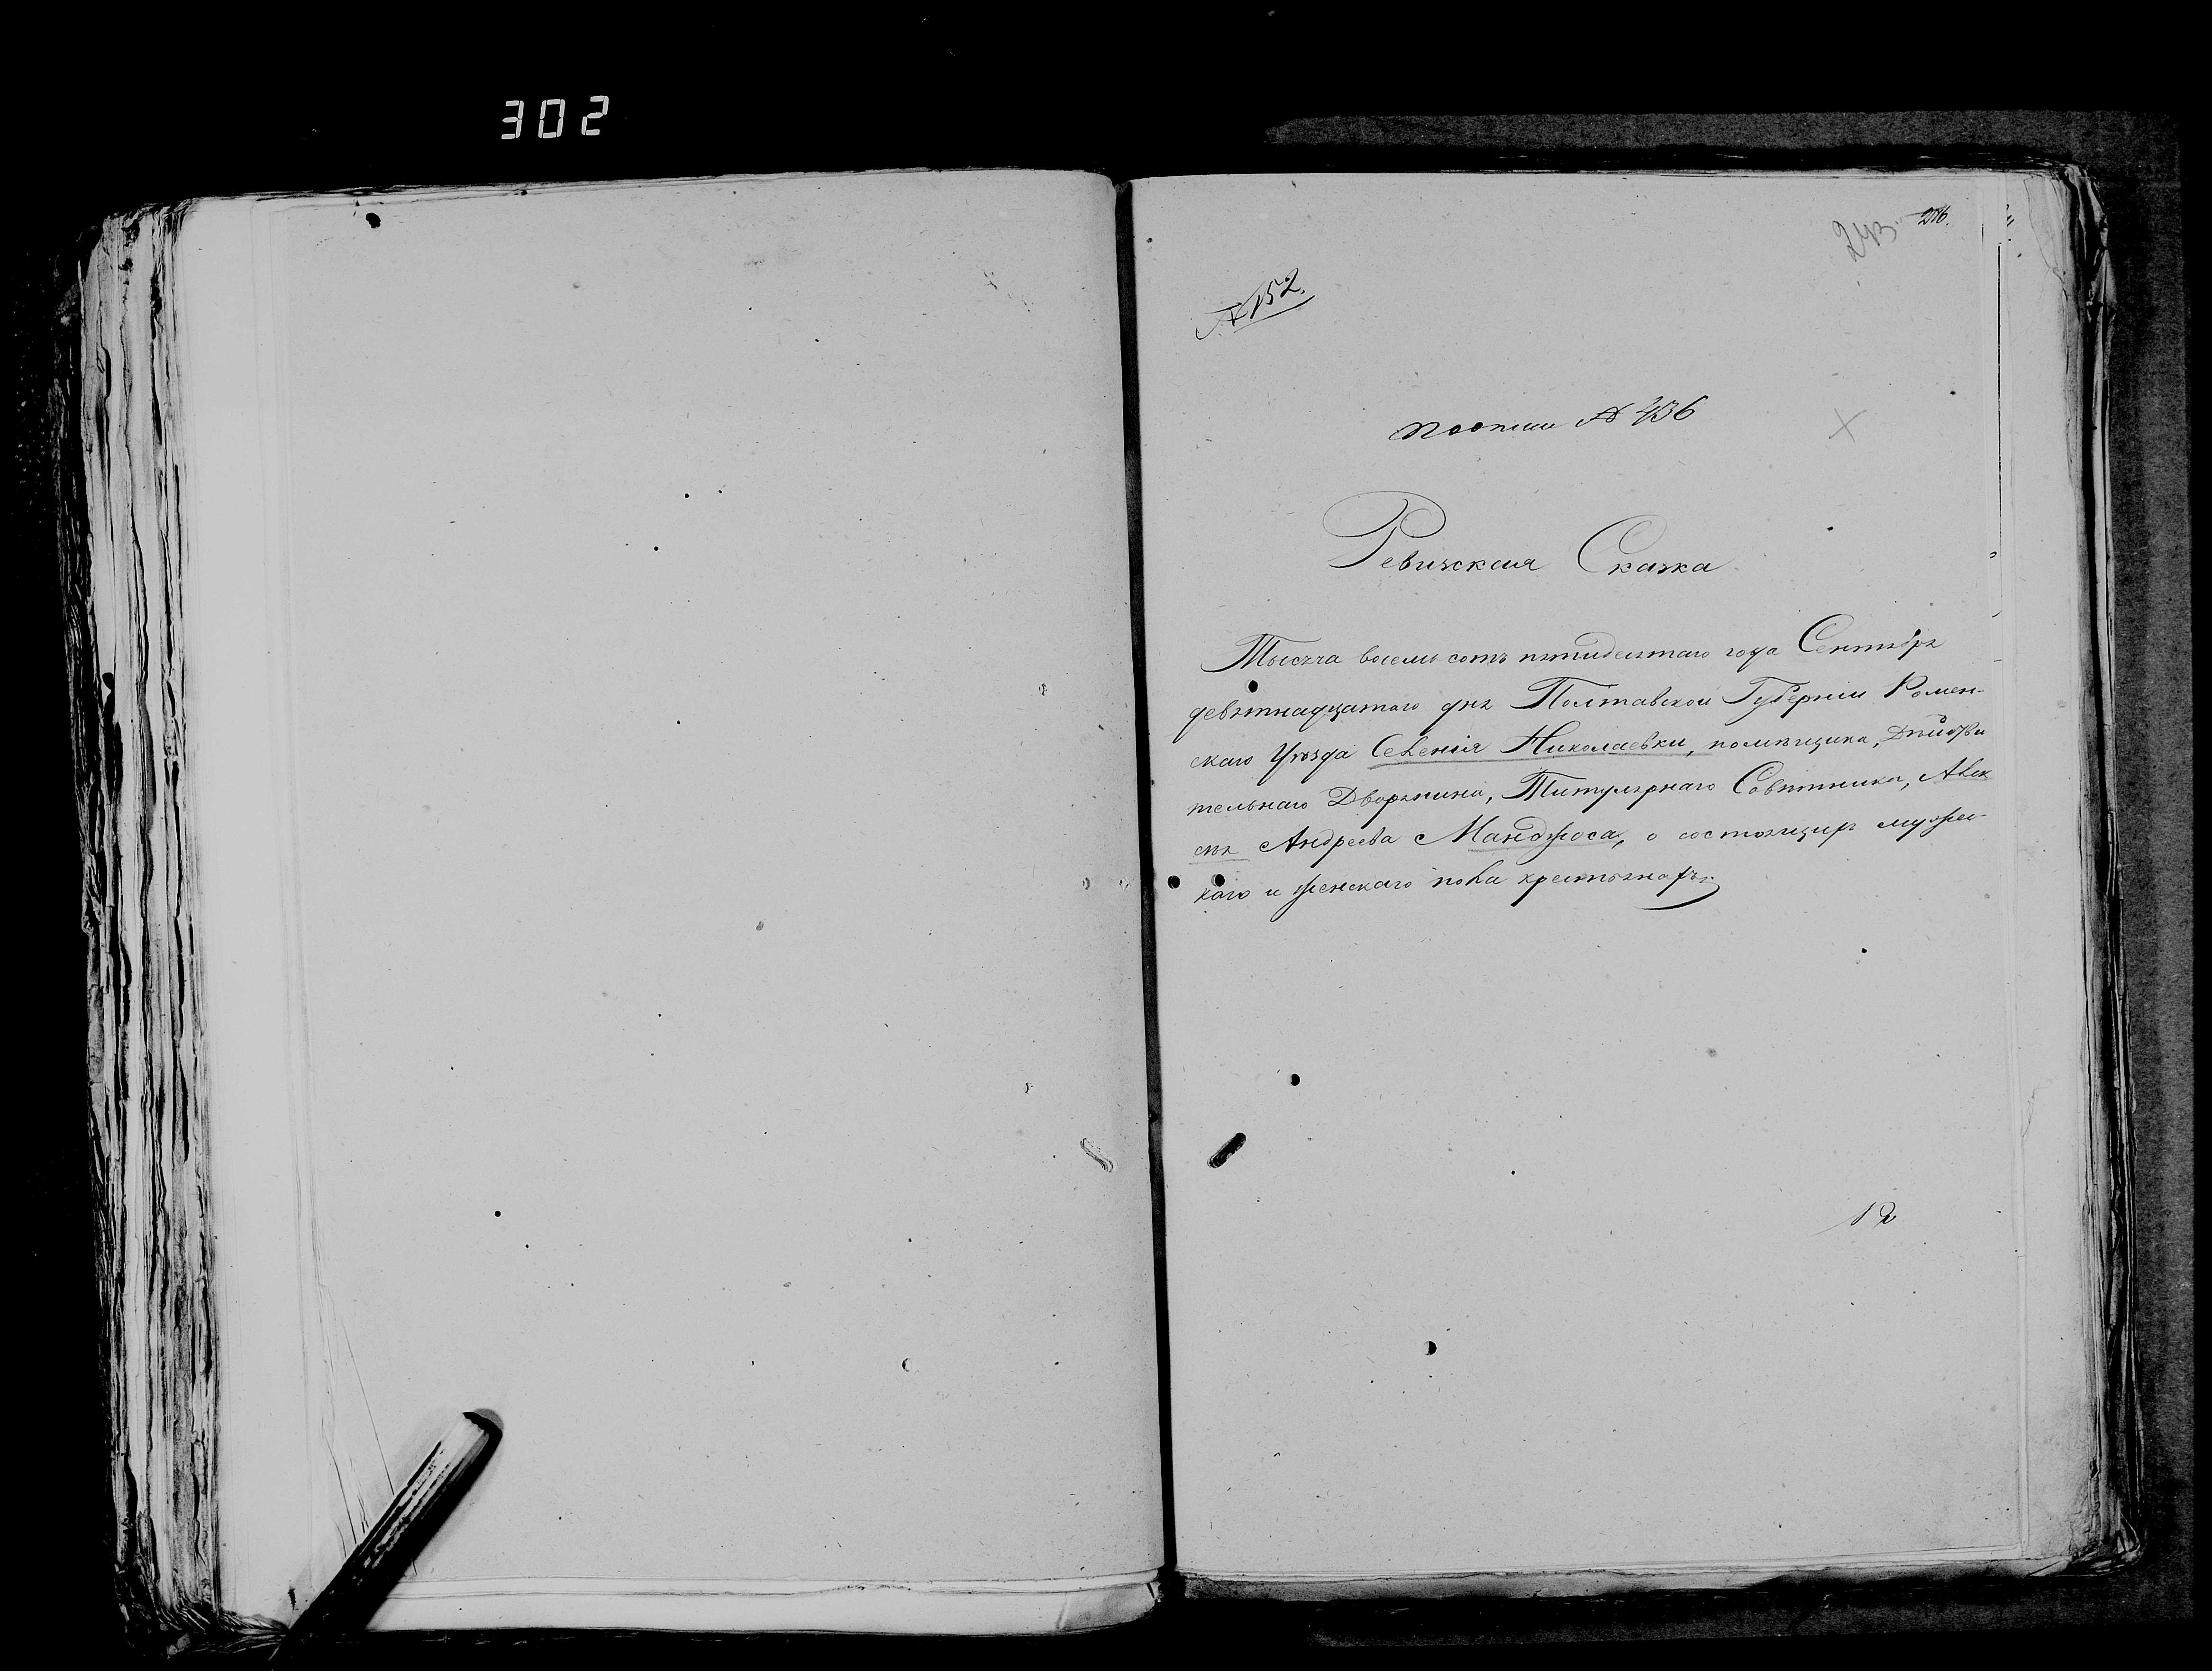 302
243 276.
№ 152.
по описи № 436
Ревижская Сказка
Тысяча восемь сотъ пятидесятаго года Сентября
девятнадцатаго дня Полтавской Губерніи Ромен-
скаго Уѣзда Селенія Николаевки, помѣщика,
тельнаго Дворянина, Титулярнаго Совѣтника, Алек
сѣя Андреева Манджоса, о состоящихъ мужес-
каго и женскаго пола крестьянахъ
12